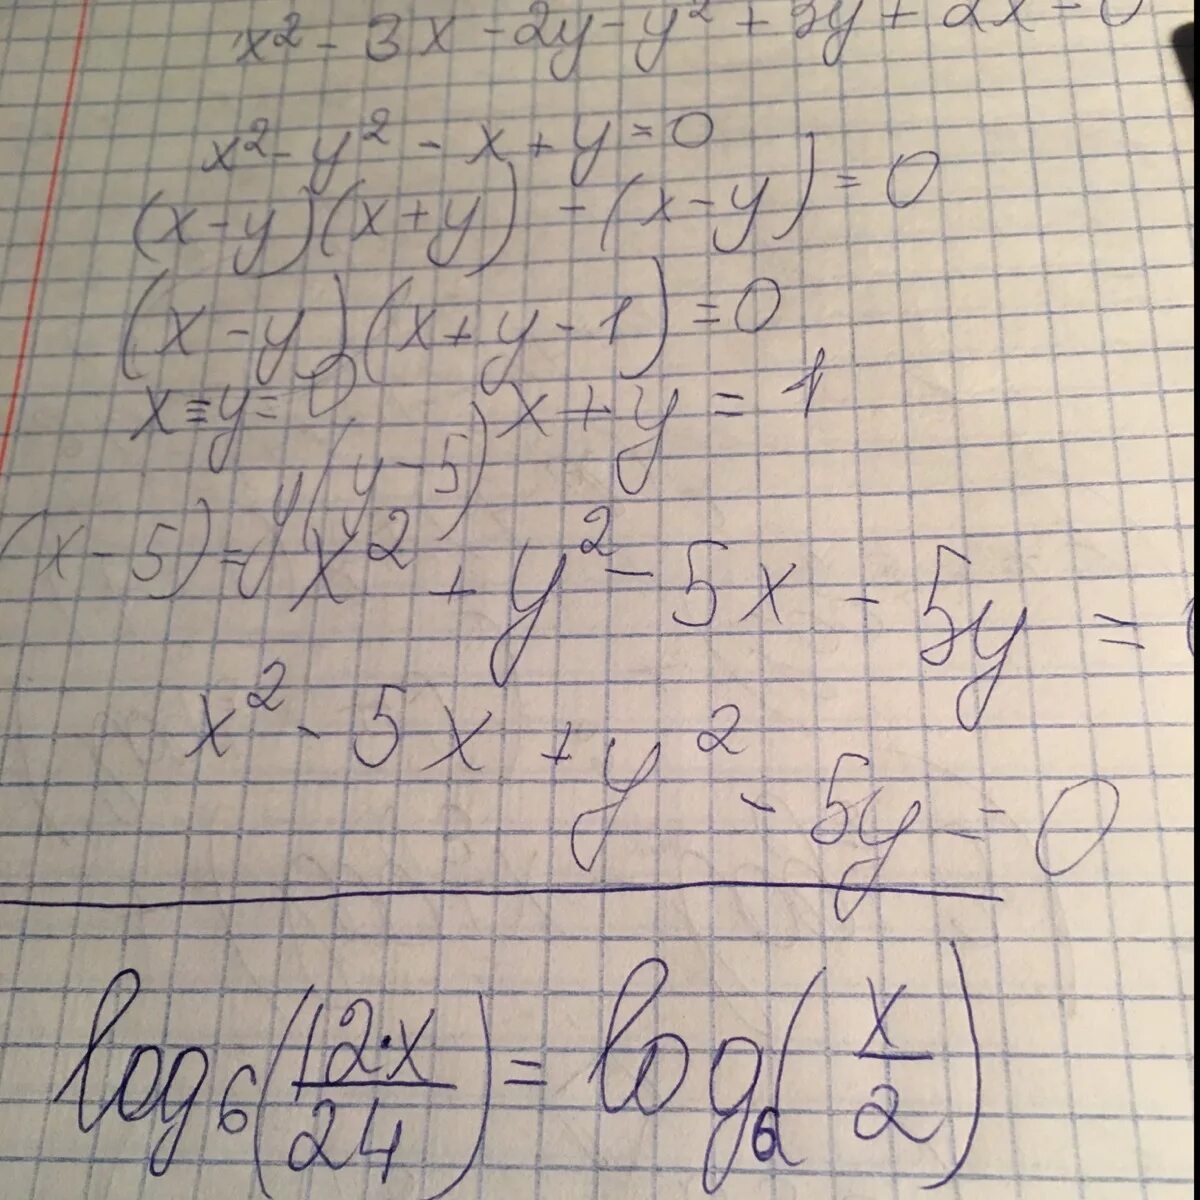 x² - 3x - 2y - y² + 3y + 2x = 0
x² - y² - x + y = 0
(x - y)(x + y) - (x - y) = 0
(x - y)(x + y - 1) = 0
x = y = 0 x + y = 1
(x - 5) = y(y - 5)
x² + y² - 5x - 5y =
x² - 5x + y² - 5y = 0
log₆(12·x/24) = log₆(x/2)